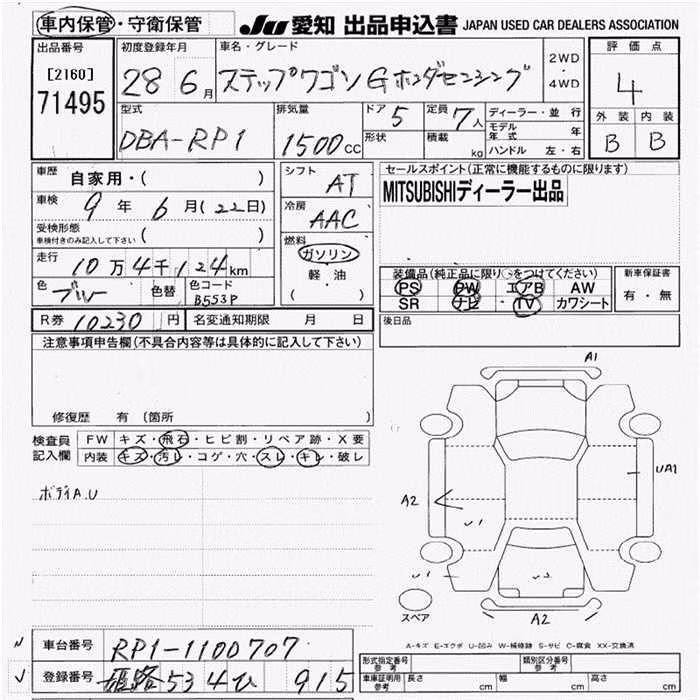 車内保管・守衛保管
JU 愛知 出品申込書 JAPAN USED CAR DEALERS ASSOCIATION
出品番号
[2160]
71495
初度登録年月
28 6月
車名・グレード
ステップワゴン G ホンダセンシング
2WD
・
4WD
評価点
4
外装 内装
B B
型式
DBA-RP1
排気量
1500cc
ドア 5
形状
定員 7人
積載 kg
ディーラー・並行
モデル年式 年
ハンドル 左・右
車歴
自家用・( )
車検
9年 6月(22日)
受検形態
車検付きのみ記入して下さい ( )
走行
10万4千124km
色 ブルー 色替 色コード
B553P
シフト
AT
冷房
AAC
燃料
ガソリン
軽・油
( )
セールスポイント(正常に機能するものに限ります)
MITSUBISHIディーラー出品
装備品(純正品に限り○をつけてください)
PS PW エアB AW
SR ナビ TV カワシート
新車保証書
有・無
R券 10230円 名変通知期限 月 日
後日品
注意事項申告欄(不具合内容等は具体的に記入して下さい)
修復歴 有(箇所 )
検査員
記入欄
FW キズ・飛石・ヒビ割・リペア跡・X要
内装 キズ・汚レ・コゲ・穴・スレ・キレ・破レ
ボディA.U
A1
UA1
A2
U1
U1
U2
A2
スペア
A-キズ E-エクボ U-凹み W-補修跡 S-サビ C-腐食 XX-交換済
車台番号 RP1-1100707
登録番号 姫路 534 ひ 915
形式指定番号
参考
類別区分番号
参考
車庫証明用
参考
長さ cm 幅 cm 高さ cm